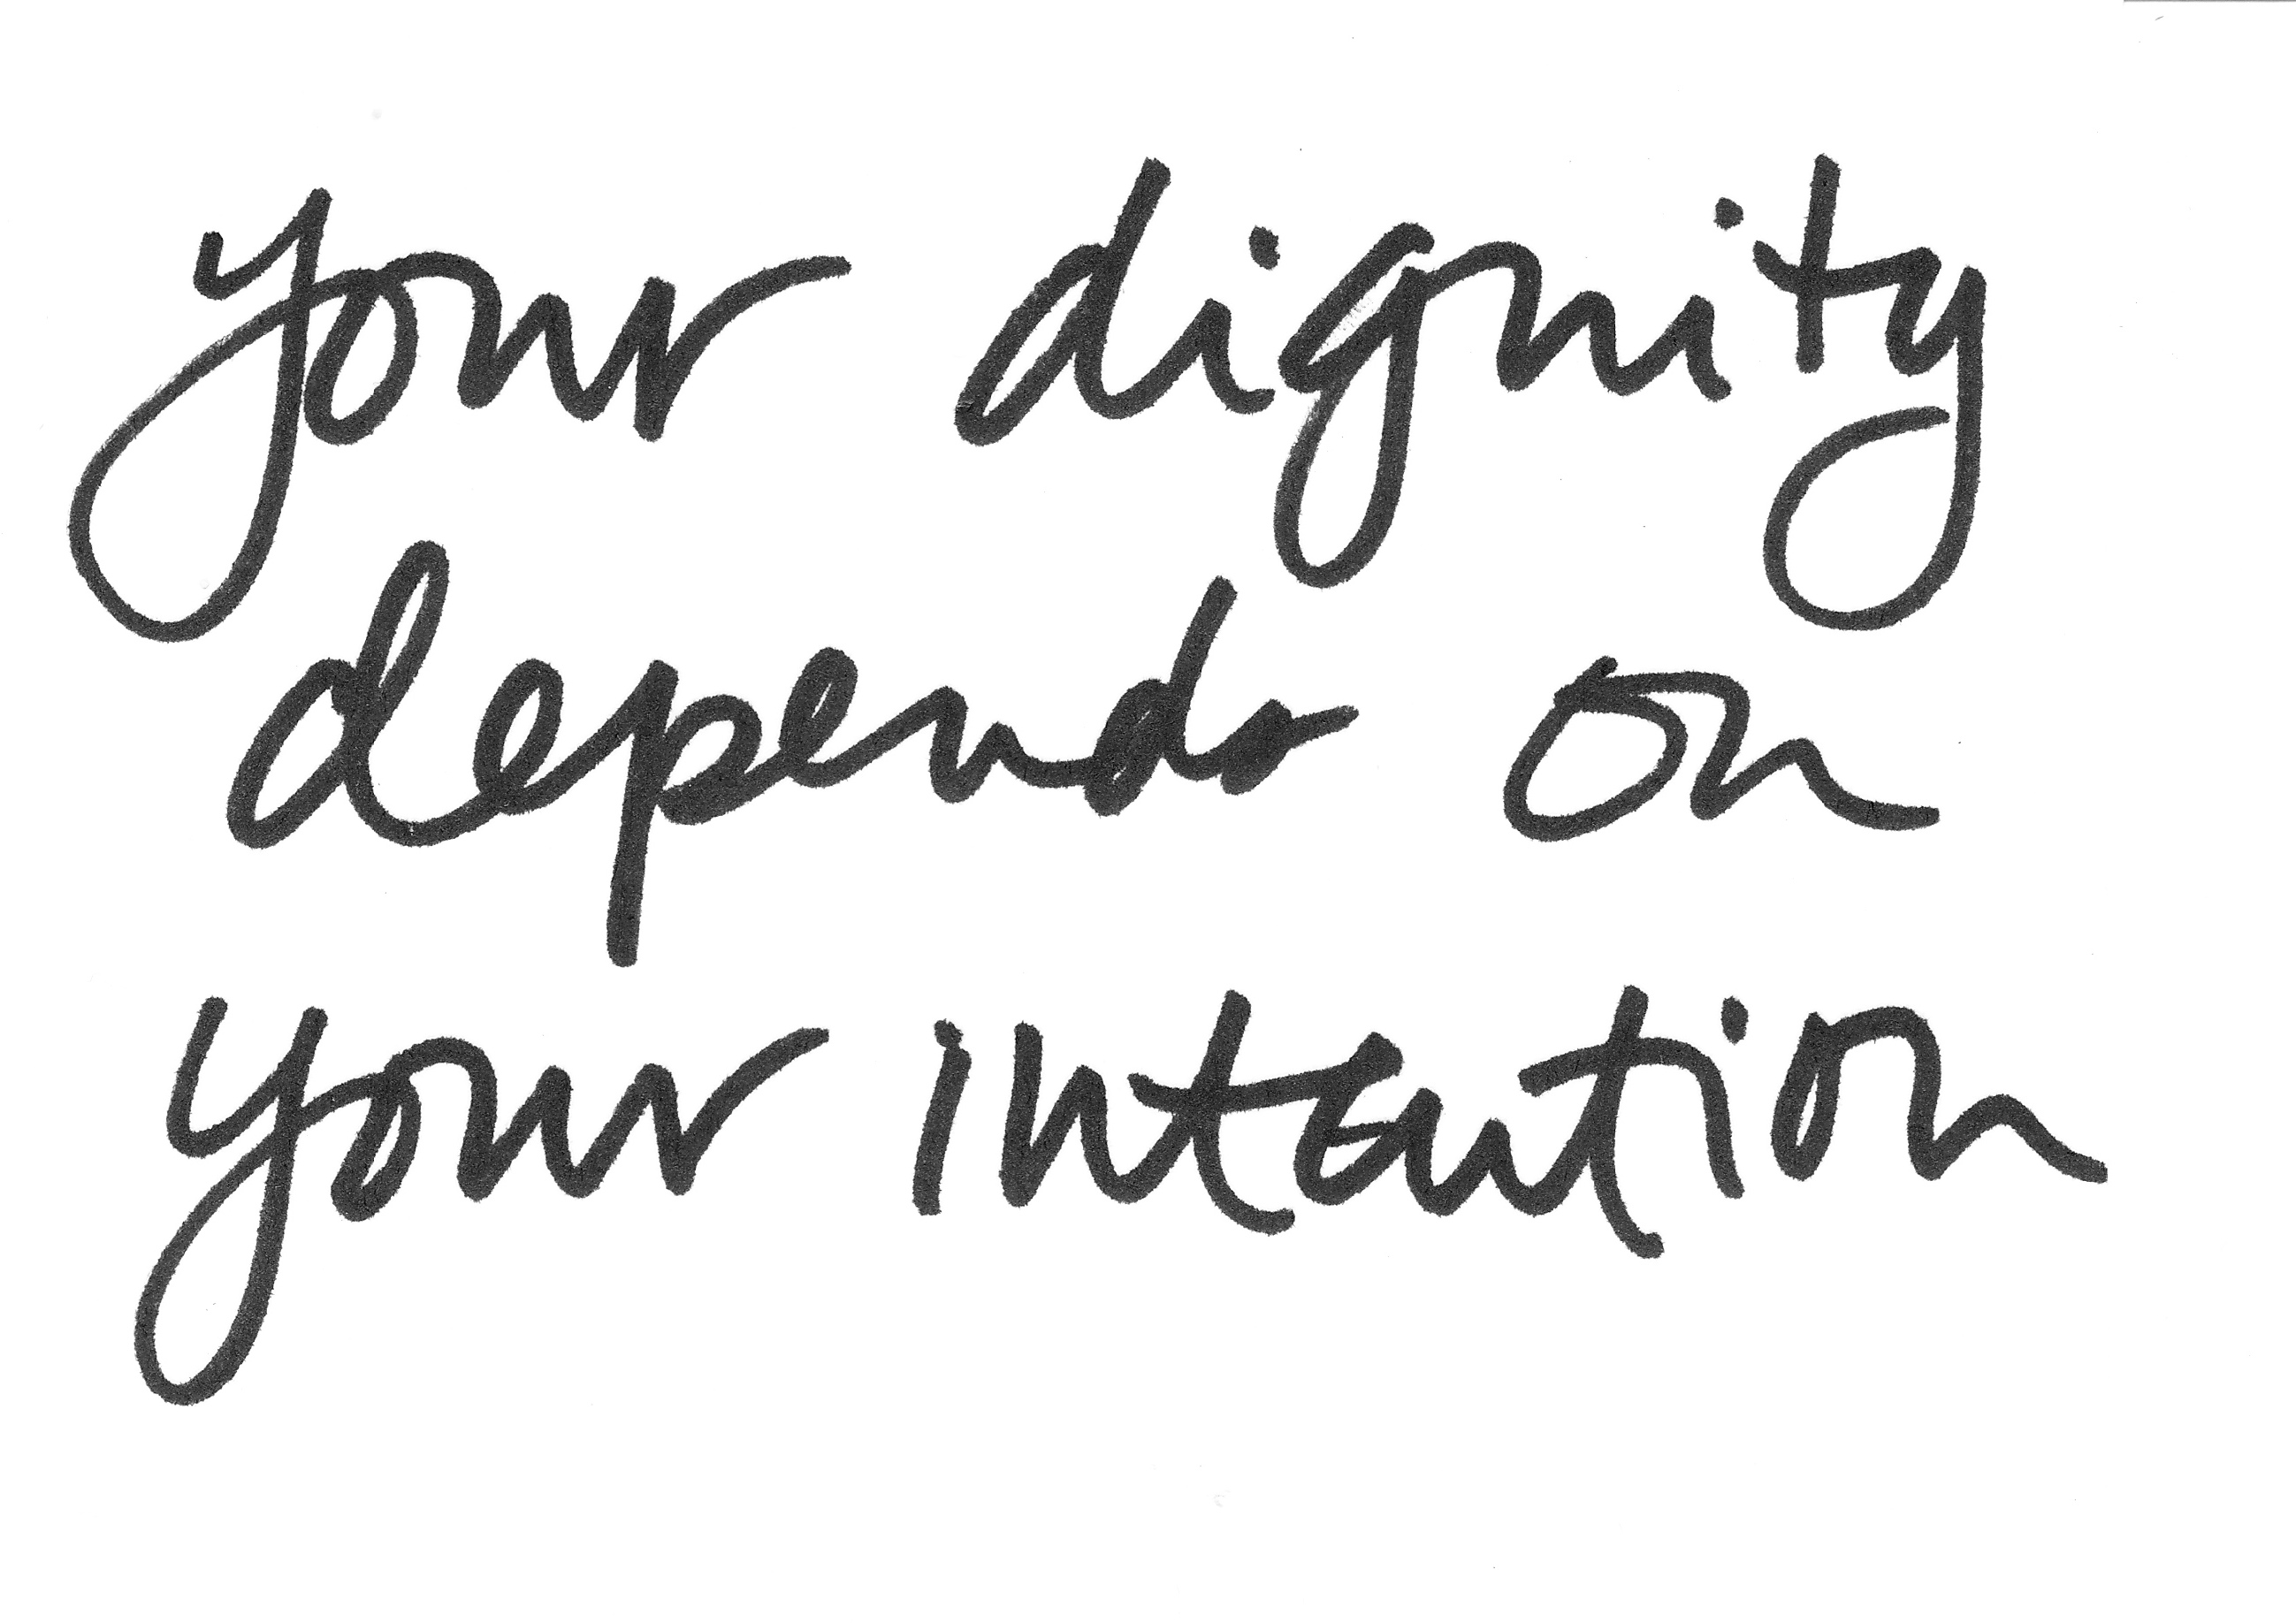 your dignity
depends on
your intention